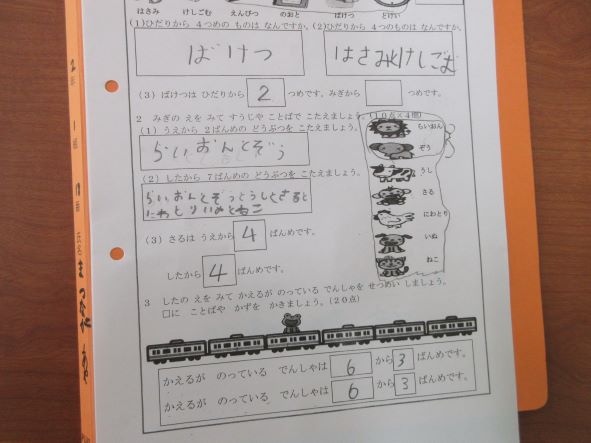 はさみ けしごむ えんぴつ のおと ばけつ とけい
(1)ひだりから 4つめの ものは なんですか。 (2)ひだりから 4つのものは なんですか。
ばけつ はさみけしごむ
(3) ばけつは ひだりから 2 つめです。みぎから つめです。
2 みぎの えを みて すうじや ことばで こたえましょう。(10点×4問)
(1) うえから 2ばんめの どうぶつを こたえましょう。
らいおんとぞう
(2) したから 7ばんめの どうぶつを こたえましょう。
らいおんとぞっとうしとさると
にわとりいぬとねこ
(3) さるは うえから 4 ばんめです。
したから 4 ばんめです。
らいおん
ぞう
うし
さる
にわとり
いぬ
ねこ
3 したの えを みて かえるが のっている でんしゃを せつめい しましょう。
口に ことばや かずを かきましょう。(20点)
かえるが のっている でんしゃは 6 から 3 ばんめです。
かえるが のっている でんしゃは 6 から 3 ばんめです。
2年 1組